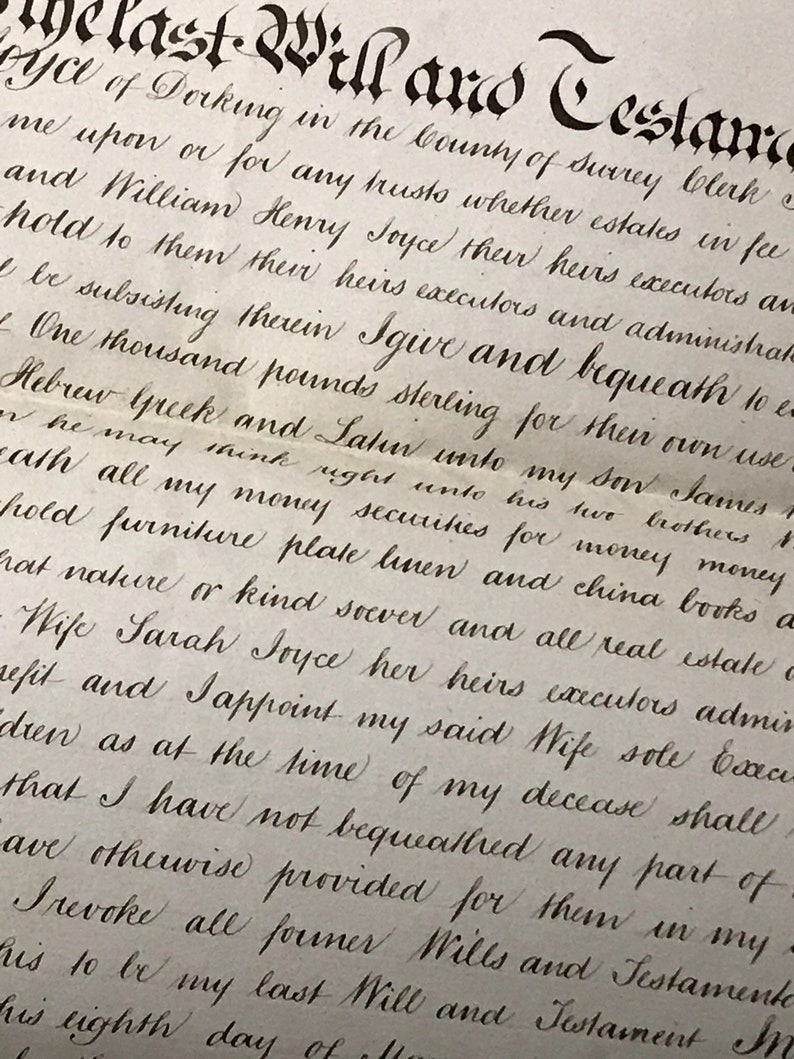 the last Will and Testam
Joyce of Dorking in the County of Surrey Clerk
me upon or for any trusts whether estates in fee
and William Henry Joyce their heirs executors an
hold to them their heirs executors and administrat
l be subsisting therein I give and bequeath to e
f One thousand pounds sterling for their own use
Hebrew Greek and Latin unto my son James
n he may think right unto his two brothers
eath all my money securities for money money
hold furniture plate linen and china books a
hat nature or kind soever and all real estate
Wife Sarah Joyce her heirs executors admin
nefit and I appoint my said Wife sole Execu
ldren as at the time of my decease shall
that I have not bequeathed any part of
have otherwise provided for them in my
I revoke all former Wills and Testaments
his to be my last Will and Testament In
his eighth day of